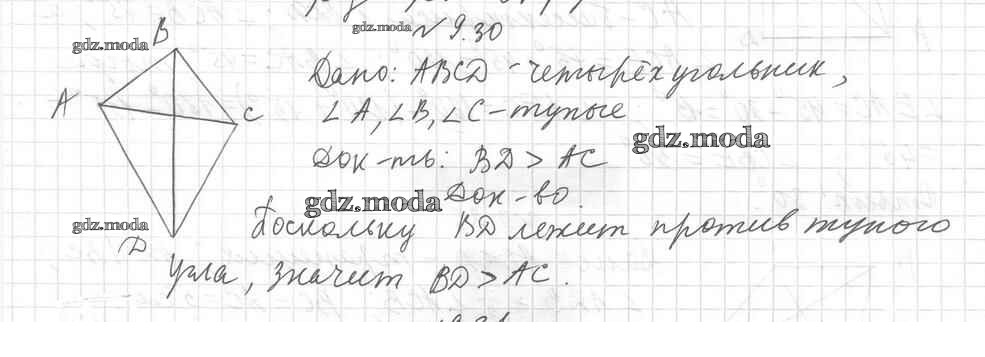 gdz.moda
№ 9.30
gdz.moda
B
Дано: ABCD - четырёхугольник,
A
C
∠A, ∠B, ∠C - тупые
gdz.moda
Док-ть: BD > AC
gdz.moda
Док-во.
gdz.moda
Поскольку BD лежит против тупого
D
угла, значит BD > AC.